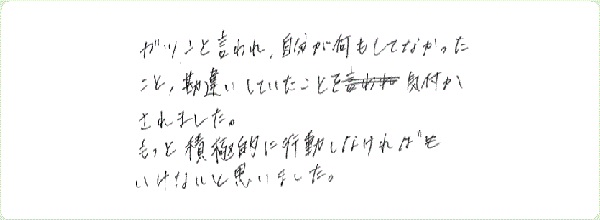 ガツンと言われ、自分が何もしてなかった
こと、勘違いしていたことを気付か
されました。
もっと積極的に行動しなければ
いけないと思いました。